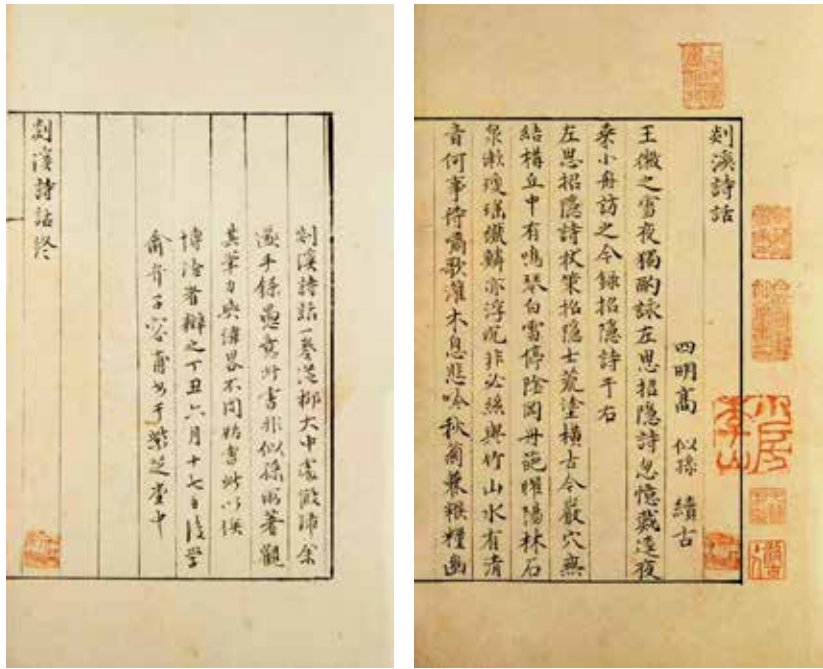 剡溪詩話
四明髙 似孫 續古
王徽之雪夜獨酌詠左思招隠詩忽憶戴逵夜
乗小舟訪之今録招隠詩于右
左思招隠詩杖策招隠士荒塗横古今巖穴無
結構丘中有鳴琴白雪停陰岡丹葩曜陽林石
泉漱瓊瑶纎鱗亦浮沉非必絲與竹山水有清
音何事待嘯歌灌木息悲吟秋菊兼糇糧幽
剡溪詩話一卷從柳大中處假 余
手 愚意此書非似孫所著觀
其筆力與緯畧不同 書此以俟
博洽者辯之丁丑六月十七日後學
俞弁子容甫書于紫芝堂中
剡溪詩話終